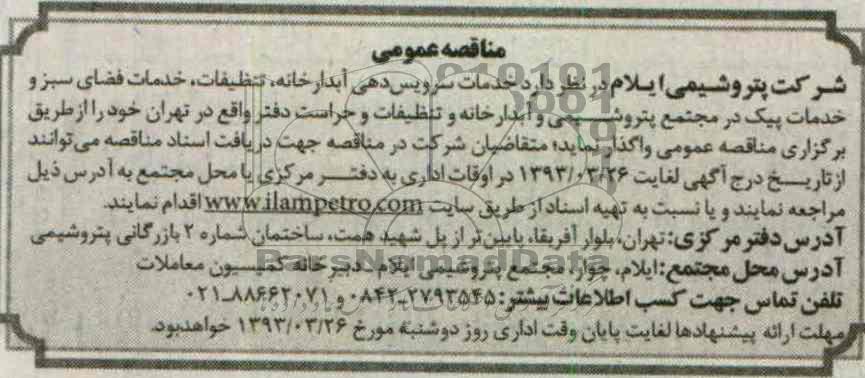 مناقصه عمومی
شرکت پتروشیمی ایلام در نظر دارد خدمات سرویس‌دهی آبدارخانه، تنظیفات، خدمات فضای سبز و
خدمات پیک در مجتمع پتروشیمی و آبدارخانه و تنظیفات و حراست دفتر واقع در تهران خود را از طریق
برگزاری مناقصه عمومی واگذار نماید؛ متقاضیان شرکت در مناقصه جهت دریافت اسناد مناقصه می‌توانند
از تاریخ درج آگهی لغایت ۱۳۹۳/۰۳/۲۶ در اوقات اداری به دفتر مرکزی یا محل مجتمع به آدرس ذیل
مراجعه نمایند و یا نسبت به تهیه اسناد از طریق سایت www.ilampetro.com اقدام نمایند.
آدرس دفتر مرکزی: تهران، بلوار آفریقا، پایین‌تر از پل شهید همت، ساختمان شماره ۲ بازرگانی پتروشیمی
آدرس محل مجتمع: ایلام، چوار، مجتمع پتروشیمی ایلام ـ دبیرخانه کمیسیون معاملات
تلفن تماس جهت کسب اطلاعات بیشتر: ۲۷۹۳۵۴۵-۰۸۴۲ و ۸۸۶۶۲۰۷۱-۰۲۱
مهلت ارائه پیشنهادها لغایت پایان وقت اداری روز دوشنبه مورخ ۱۳۹۳/۰۳/۲۶ خواهدبود.
ParsNamadData